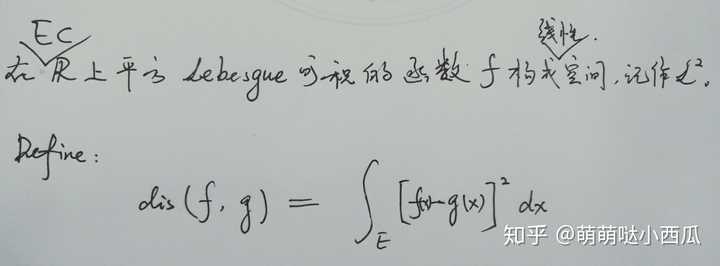 EC
线性.
在 R 上平方 Lebesgue 可积的函数 f 构成空间,记作 L².
Define:
dis(f, g) = ∫_E [f(x)-g(x)]² dx
知乎 @萌萌哒小西瓜